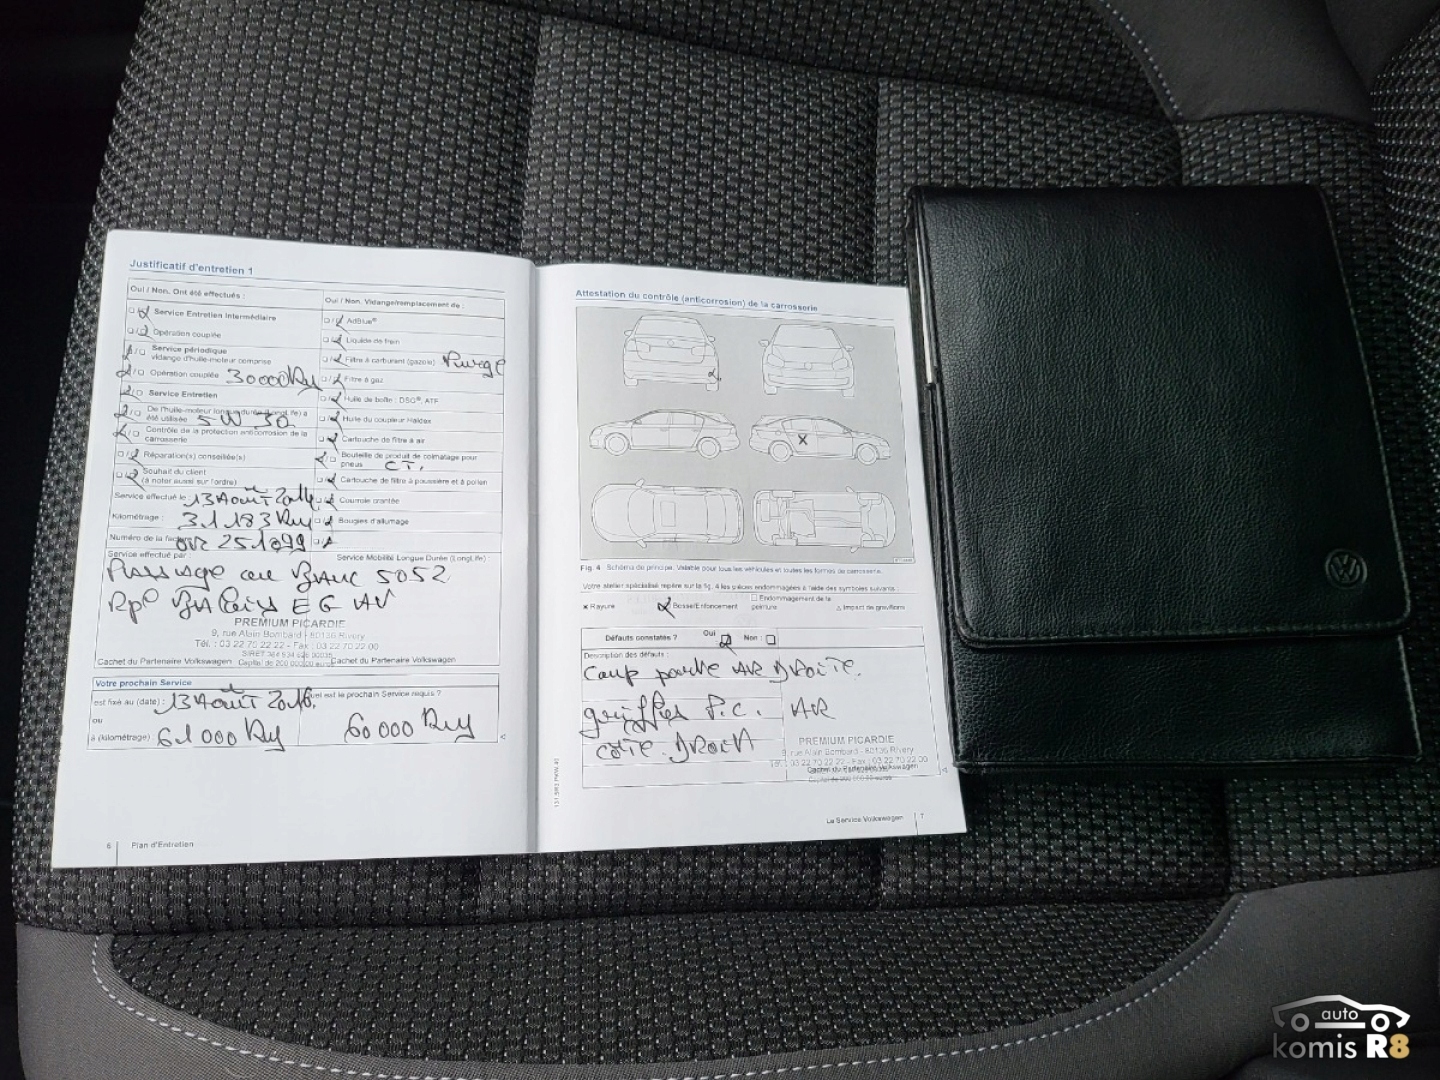 Justificatif d'entretien 1
Oui / Non. Ont été effectués :
Service Entretien Intermédiaire
Opération couplée
Service périodique
vidange d'huile-moteur comprise
Opération couplée 30000 Km
Service Entretien
De l'huile-moteur longue durée (LongLife) a
été utilisée 5W30
Contrôle de la protection anticorrosion de la
carrosserie
Réparation(s) conseillée(s)
Souhait du client
(à noter aussi sur l'ordre)
Service effectué le : 13 Août 2014
Kilométrage : 31183 Km
Numéro de la facture 251099
Oui / Non. Vidange/remplacement de :
AdBlue®
Liquide de frein
Filtre à carburant (gazole) Purge
Filtre à gaz
Huile de boîte : DSG®, ATF
Huile du coupleur Haldex
Cartouche de filtre à air
Bouteille de produit de colmatage pour
pneus CT.
Cartouche de filtre à poussière et à pollen
Courroie crantée
Bougies d'allumage
Service effectué par :
Service Mobilité Longue Durée (LongLife) :
Passage au Banc 5052
Rpl Balais EG AV
PREMIUM PICARDIE
9, rue Alain Bombard - 80136 Rivery
Tél. : 03 22 70 22 22 - Fax : 03 22 70 22 00
Cachet du Partenaire Volkswagen
Cachet du Partenaire Volkswagen
Votre prochain Service
est fixé au (date) : 13 Août 2016
Quel est le prochain Service requis ?
ou
à (kilométrage) 61000 Km
60000 Km
6 Plan d'Entretien
Attestation du contrôle (anticorrosion) de la carrosserie
Fig. 4 Schéma de principe. Valable pour tous les véhicules et toutes les formes de carrosserie.
Votre atelier spécialisé repère sur la fig. 4 les pièces endommagées à l'aide des symboles suivants :
Rayure
Bosse/Enfoncement
Endommagement de la
peinture
Impact de gravillons
Défauts constatés ? Oui Non :
Description des défauts :
Coup porte AR Droite.
griffes P.C. AR
cote Droit
PREMIUM PICARDIE
9, rue Alain Bombard - 80136 Rivery
Tél. : 03 22 70 22 22 - Fax : 03 22 70 22 00
Cachet du Partenaire Volkswagen
Le Service Volkswagen 7
auto
komis R8